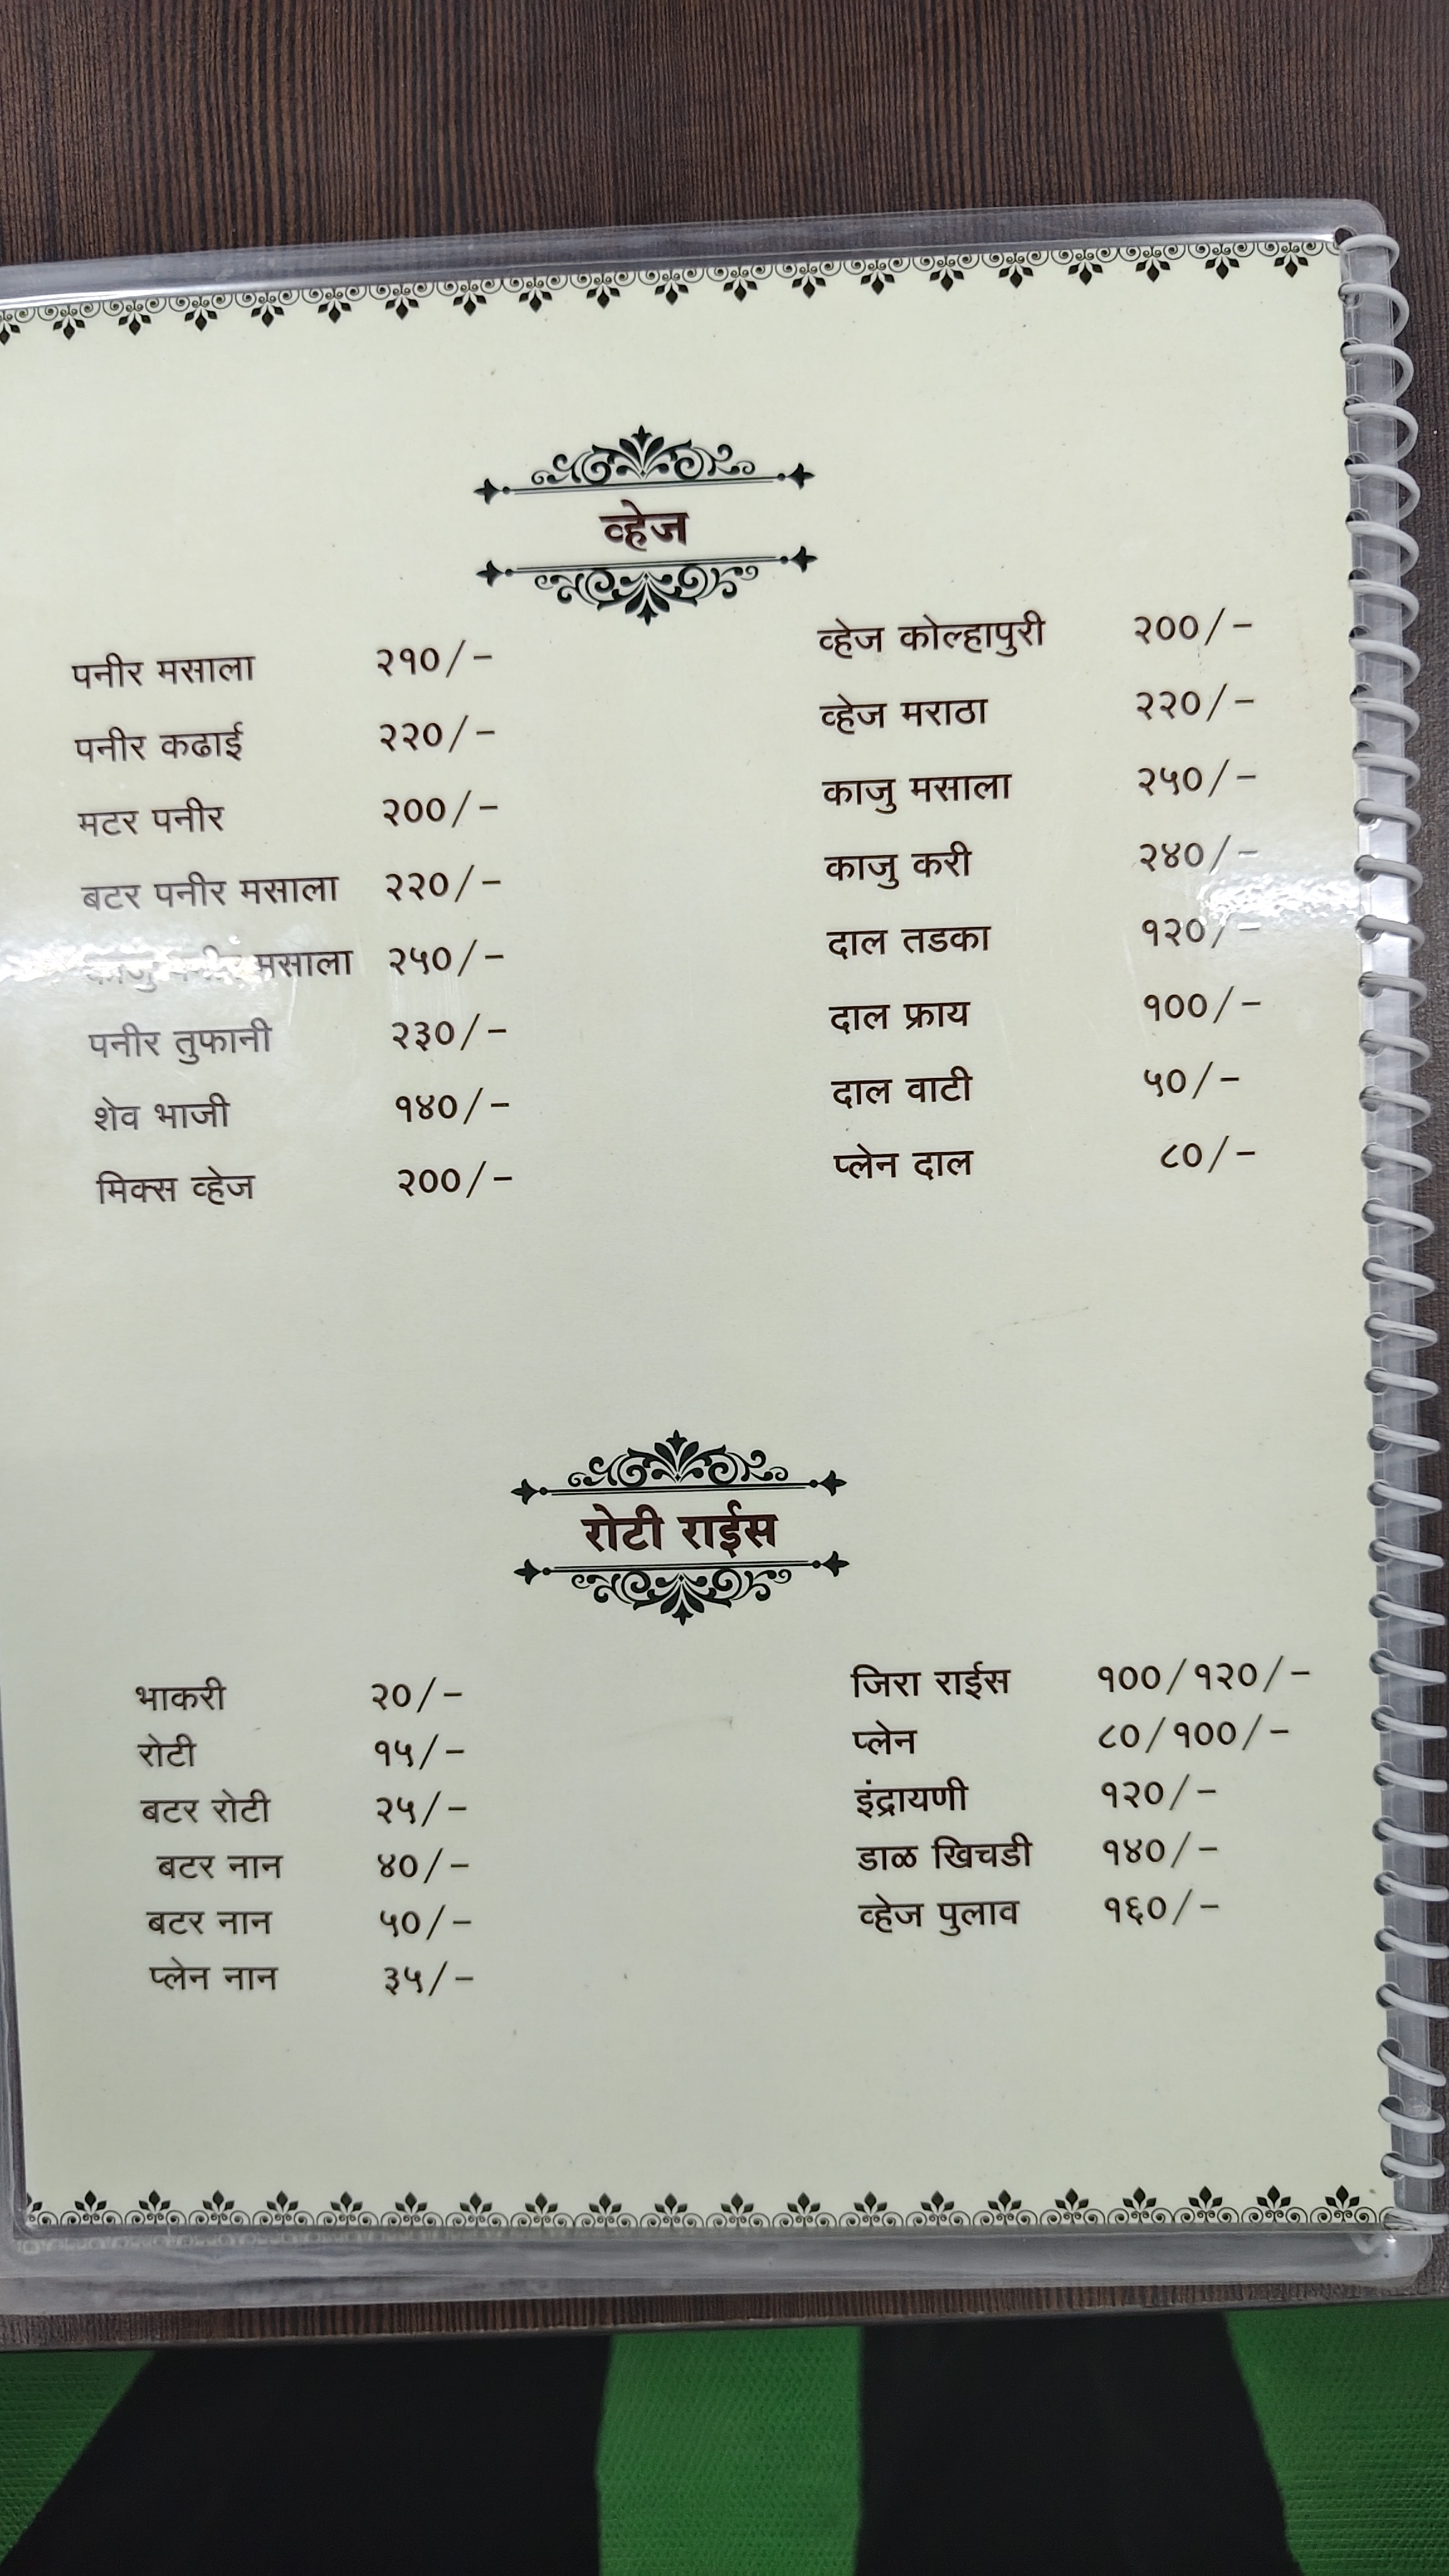 व्हेज
पनीर मसाला २१०/-
पनीर कढाई २२०/-
मटर पनीर २००/-
बटर पनीर मसाला २२०/-
काजु पनीर मसाला २५०/-
पनीर तुफानी २३०/-
शेव भाजी १४०/-
मिक्स व्हेज २००/-
व्हेज कोल्हापुरी २००/-
व्हेज मराठा २२०/-
काजु मसाला २५०/-
काजु करी २४०/-
दाल तडका १२०/-
दाल फ्राय १००/-
दाल वाटी ५०/-
प्लेन दाल ८०/-
रोटी राईस
भाकरी २०/-
रोटी १५/-
बटर रोटी २५/-
बटर नान ४०/-
बटर नान ५०/-
प्लेन नान ३५/-
जिरा राईस १००/१२०/-
प्लेन ८०/१००/-
इंद्रायणी १२०/-
डाळ खिचडी १४०/-
व्हेज पुलाव १६०/-